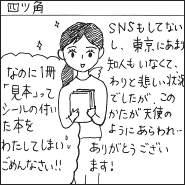 四ツ角
SNSもしてない
し、東京にあまり
知人もいなくて、
わりと悲しい状況
でしたが、この
かたが天使の
ようにあらわれ…
ありがとうござい
ます!
なのに1冊
「見本」って
シールの付いた
本を
わたしてしまい
ごめんなさい!!